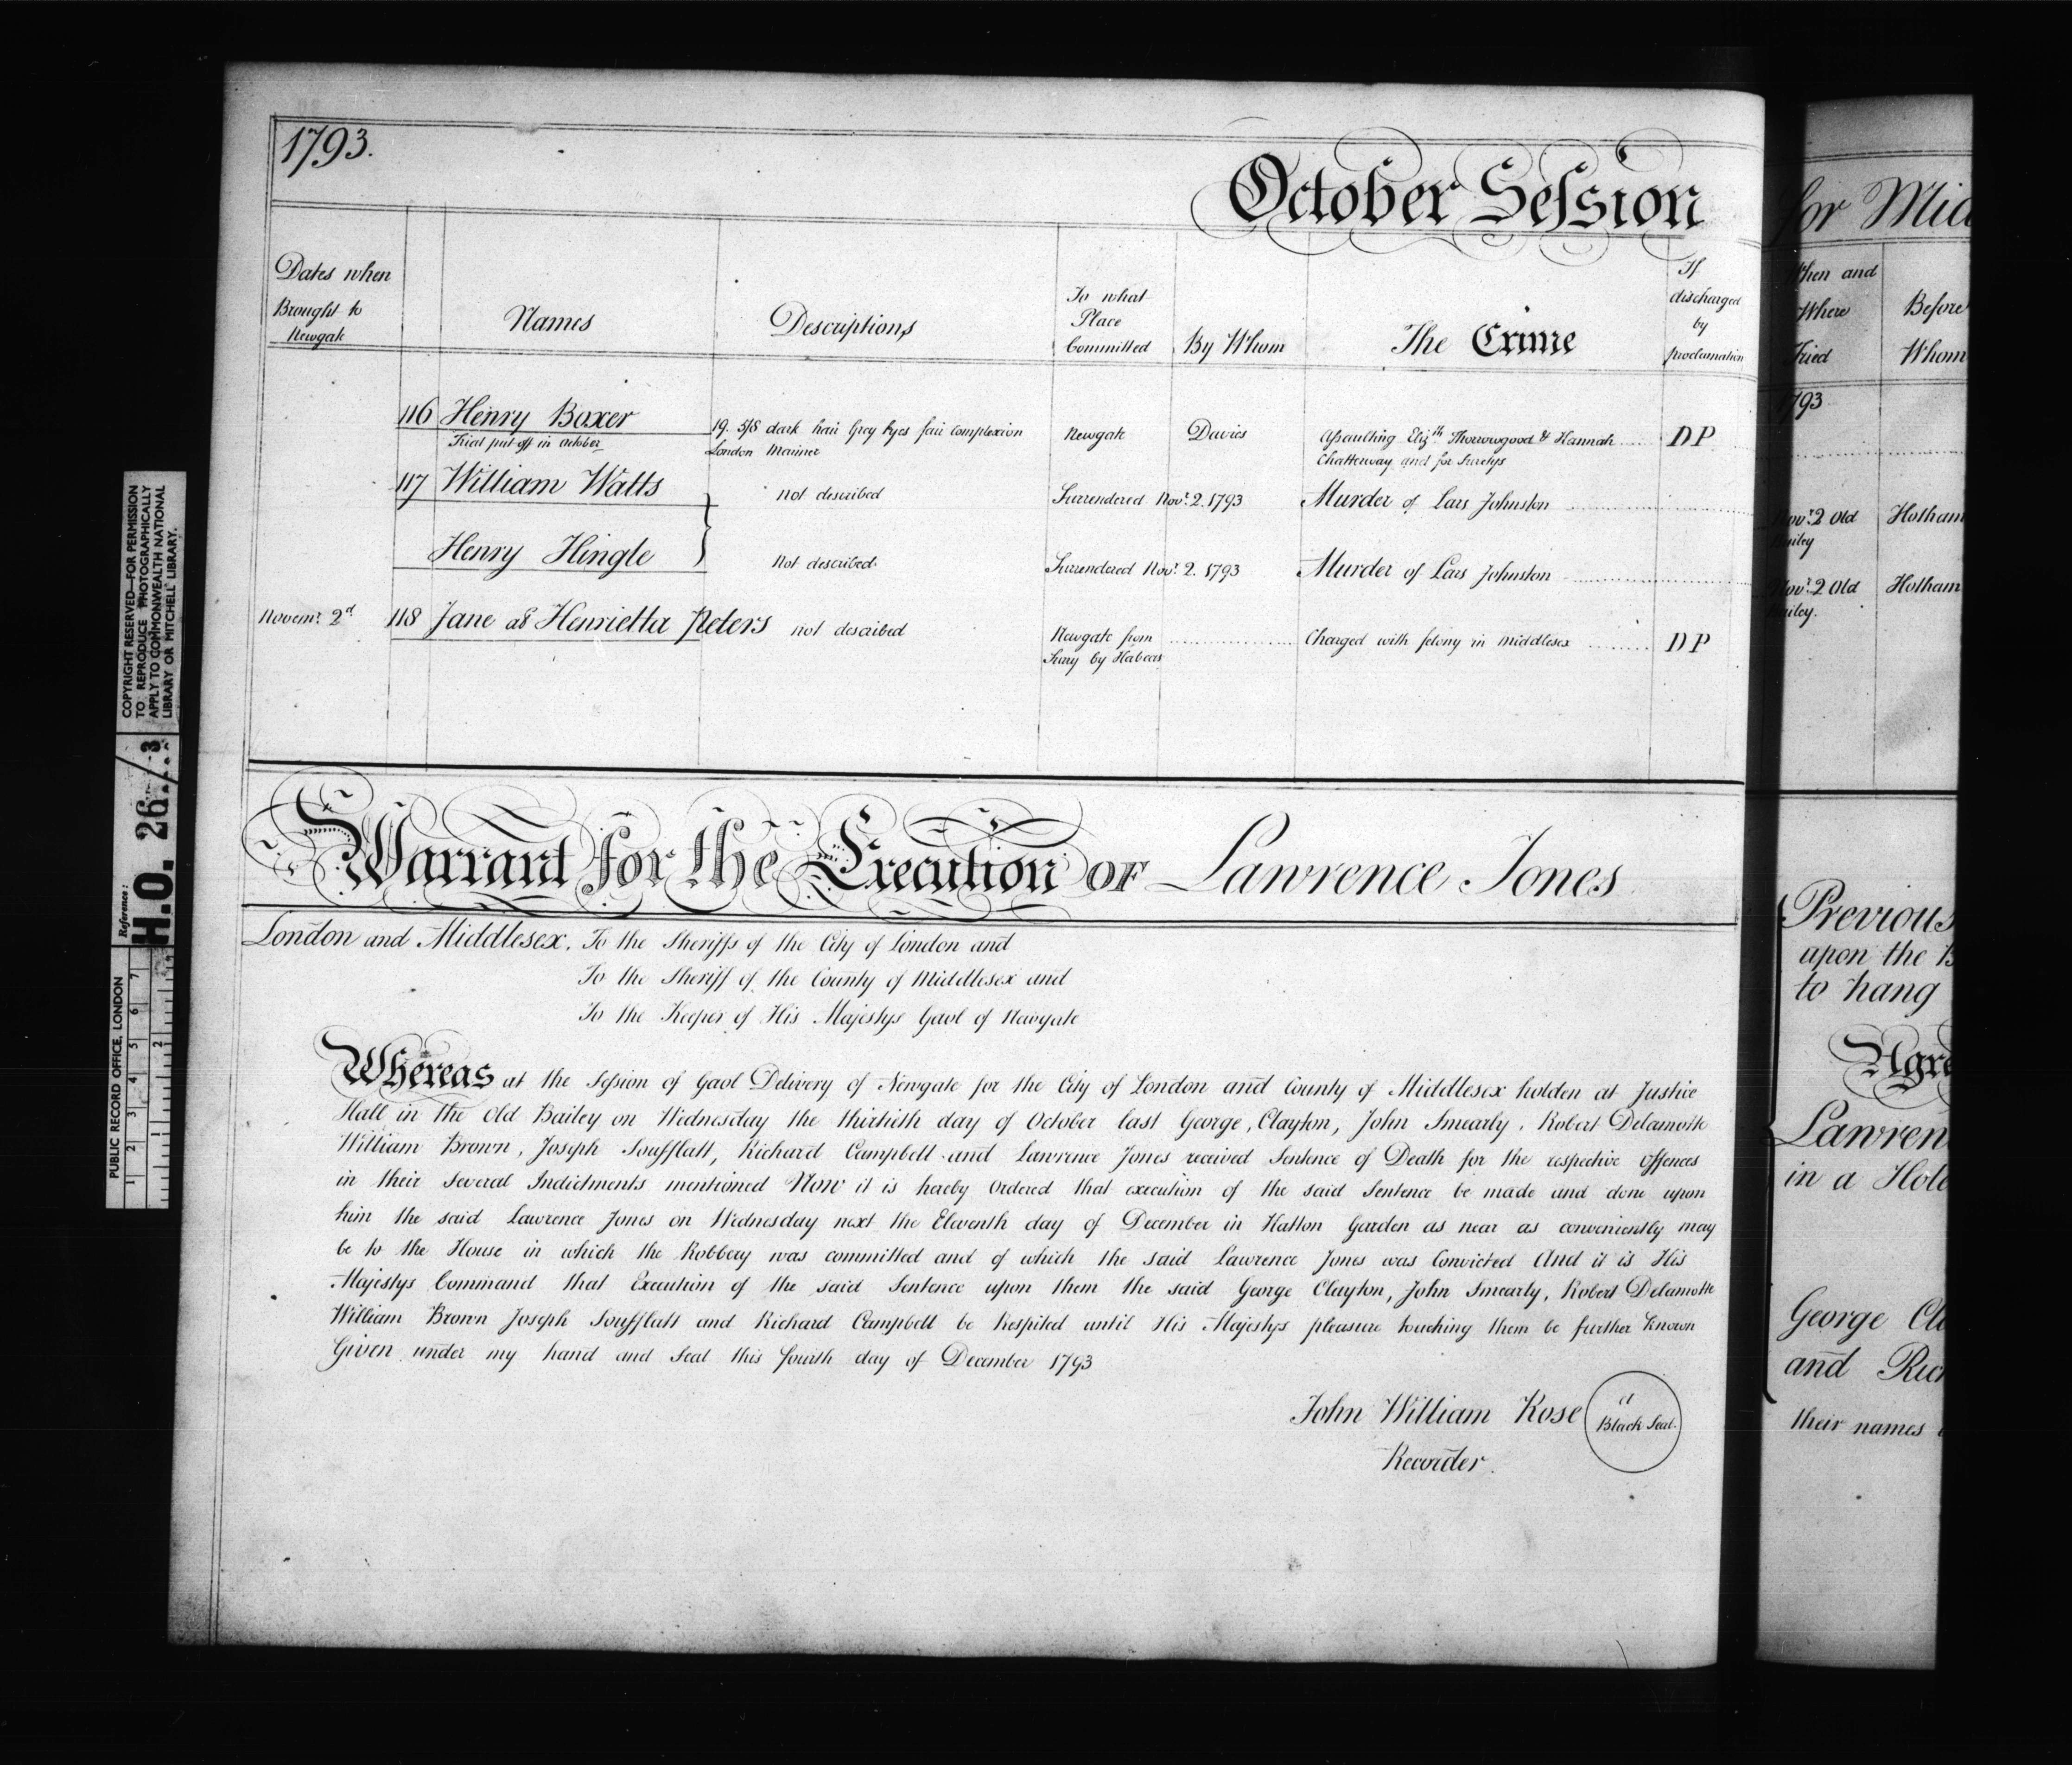 1793.
October Seſsion
for Mid
Dates when
Brought to
Newgate
Names
Descriptions
To what
Place
Committed
By Whom
The Crime
If
discharged
by
proclamation
When and
Where
Tried
Before
Whom
1793
116 Henry Boxer
Trial put off in October
19. 5/8 dark hair Grey Eyes fair Complexion
London Mariner
Newgate
Davies
Aſsaulting Eliz.th Thorowgood & Hannah
Chatterway and for Suretys
DP
117 William Watts
not described
Surrendered Nov.r 2. 1793
Murder of Lars Johnston
Nov.r 2 Old
Bailey
Hotham
Henry Hingle
Not described.
Surrendered Nov.r 2. 1793
Murder of Lars Johnston
Nov.r 2 Old
Bailey.
Hotham
Novem.r 2.d 118 Jane as Henrietta Peters
not described
Newgate from
Surry by Habeas
Charged with felony in Middlesex
DP
Warrant for the Execution OF Lawrence Jones
London and Middlesex. To the Sheriffs of the City of London and
To the Sheriff of the County of Middlesex and
To the Keeper of His Majestys Gaol of Newgate
Whereas at the Session of Gaol Delivery of Newgate for the City of London and County of Middlesex holden at Justice
Hall in the Old Bailey on Wednesday the thirtieth day of October last George, Clayton, John Smearly, Robert Delamotte
William Brown, Joseph Soufflatt, Richard Campbell and Lawrence Jones received Sentence of Death for the respective Offences
in their Several Indictments mentioned Now it is hereby Ordered that execution of the said Sentence be made and done upon
him the said Lawrence Jones on Wednesday next the Eleventh day of December in Hatton Garden as near as conveniently may
be to the House in which the Robbery was committed and of which the said Lawrence Jones was Convicted And it is His
Majestys Command that Execution of the said Sentence upon them the said George Clayton, John Smearly, Robert Delamotte
William Brown Joseph Soufflatt and Richard Campbell be Respited until His Majestys pleasure touching them be further known
Given under my hand and Seal this fourth day of December 1793
John William Rose
Recorder.
a
Black Seal.
Previous
upon the B
to hang
Agre
Lawren
in a Hole
George Cla
and Rich
their names
COPYRIGHT RESERVED—FOR PERMISSION
TO REPRODUCE PHOTOGRAPHICALLY
APPLY TO COMMONWEALTH NATIONAL
LIBRARY OR MITCHELL LIBRARY.
Reference:
H.O. 26/3
PUBLIC RECORD OFFICE, LONDON
1 2 3 4 5 6 7
1 2